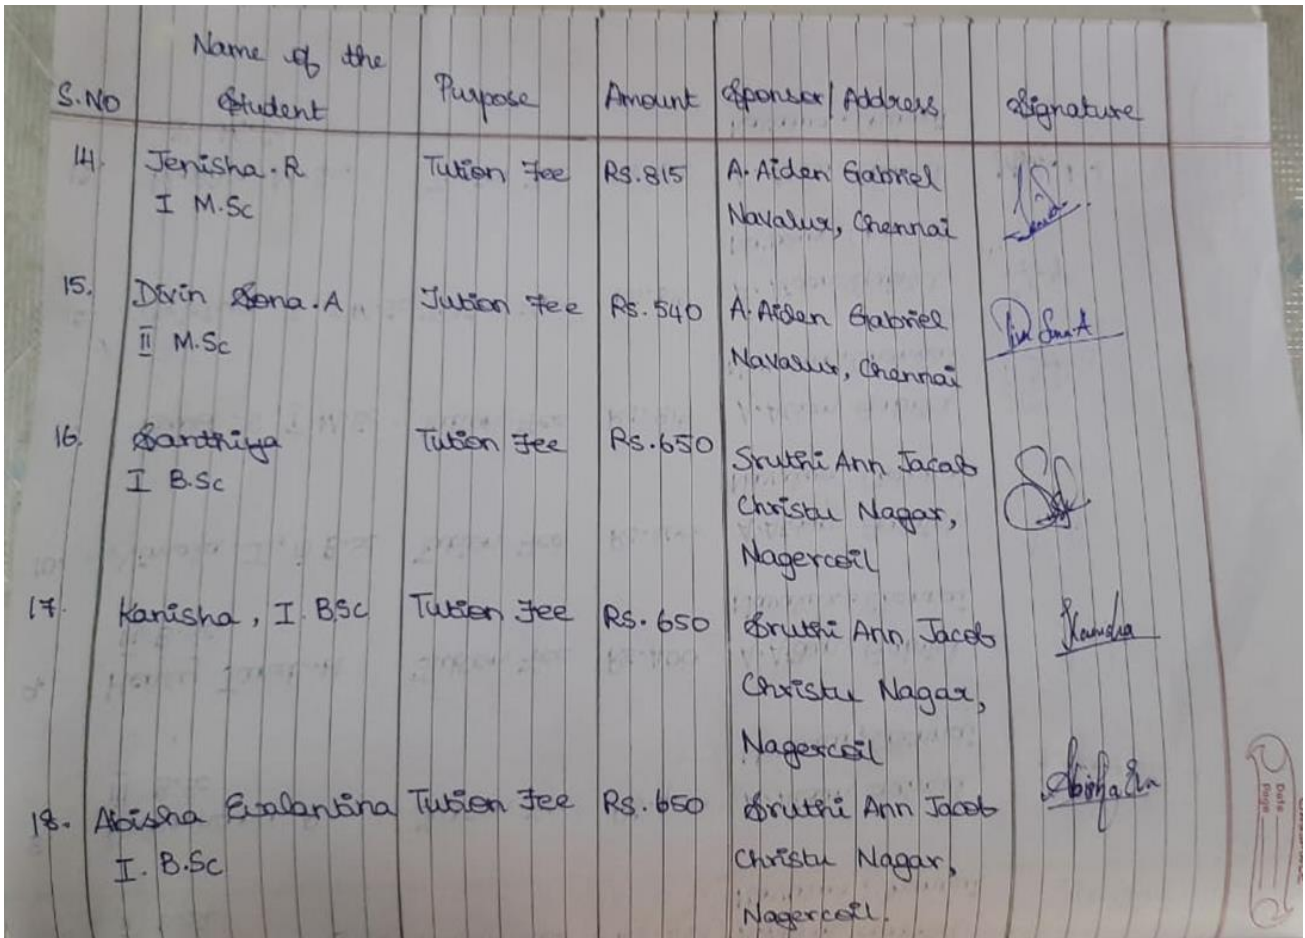 Name of the
S.No Student Purpose Amount Sponsor/Address Signature
14. Jenisha.R Tution Fee Rs.815 A.Aiden Gabriel
I M.Sc Navalur, Chennai
15. Divin Sona.A Tution Fee Rs.540 A.Aiden Gabriel Divin Sona.A
II M.Sc Navalur, Chennai
16. Santhiya Tution Fee Rs.650 Sruthi Ann Jacob
I B.Sc Christu Nagar,
Nagercoil
17. Kanisha, I. BSc Tution Fee Rs.650 Sruthi Ann Jacob Kanisha
Christu Nagar,
Nagercoil
18. Abisha Evalantina Tution Fee Rs.650 Sruthi Ann Jacob
I. B.Sc Christu Nagar,
Nagercoil.
Date
Page